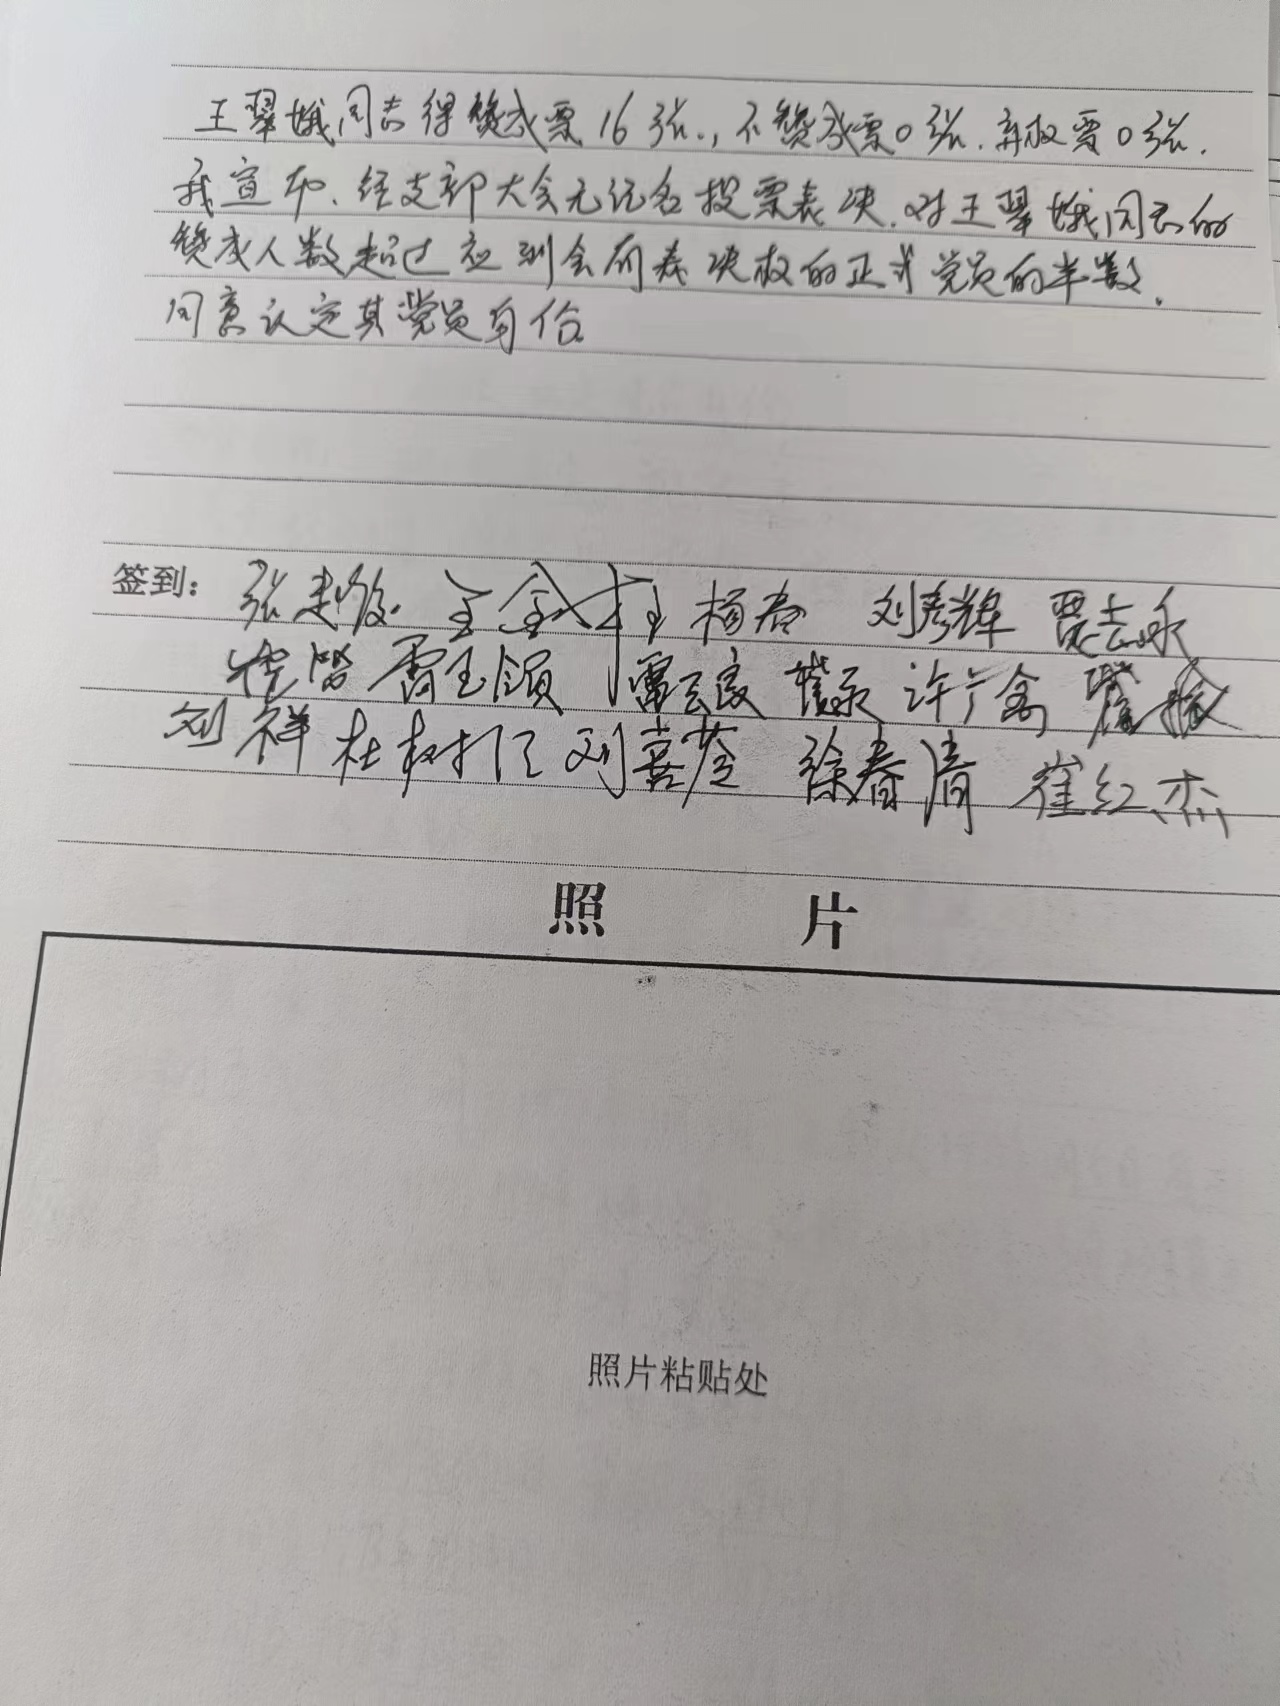 王翠娥同志得赞成票16张,不赞成票0张.弃权票0张.
我宣布、经支部大会无记名投票表决.对王翠娥同志的
赞成人数超过应到会有表决权的正式党员的半数.
同意认定其党员身份.
签到: 王金柱 杨春 刘彦辉 贾志永
许广禽
刘祥 杜树仁 刘喜荃 徐春清 崔红杰
照 片
照片粘贴处